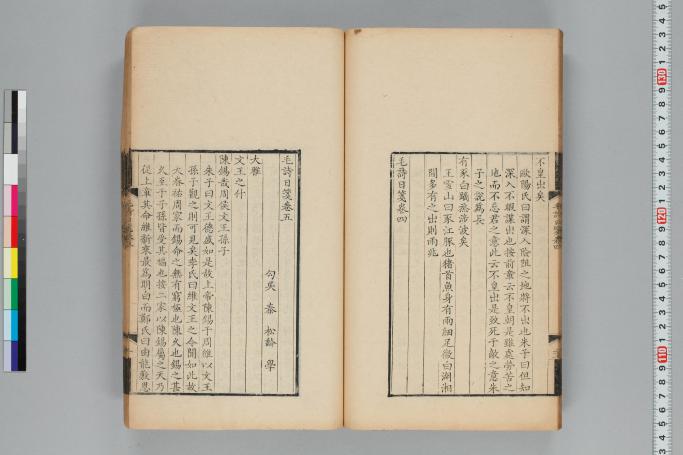 不皇出矣
歐陽氏曰謂深入險阻之地將不出也朱子曰但知
深入不暇謀出也按前章云不皇朝是雖處勞苦之
地而不忘君之意此云不皇出是致死于敵之意朱
子之說爲長
有豕白蹢烝涉波矣
王雪山曰豕江豚也豬首魚身有兩細足微白湖湘
間多有之出則雨兆
毛詩日箋卷四
毛詩日箋卷五
勾吳 秦 松齡 學
大雅
文王之什
陳錫哉周侯文王孫子
朱子曰文王德盛如是故上帝陳錫于周維以文王
孫子觀之則可見矣李氏曰維文王之令聞如此故
天眷祐周家而錫命之無有窮極也陳久也錫之甚
久至于子孫皆受其福也按二家以陳錫屬之天乃
從上章其命維新來最爲明白而鄭氏曰由能敷恩